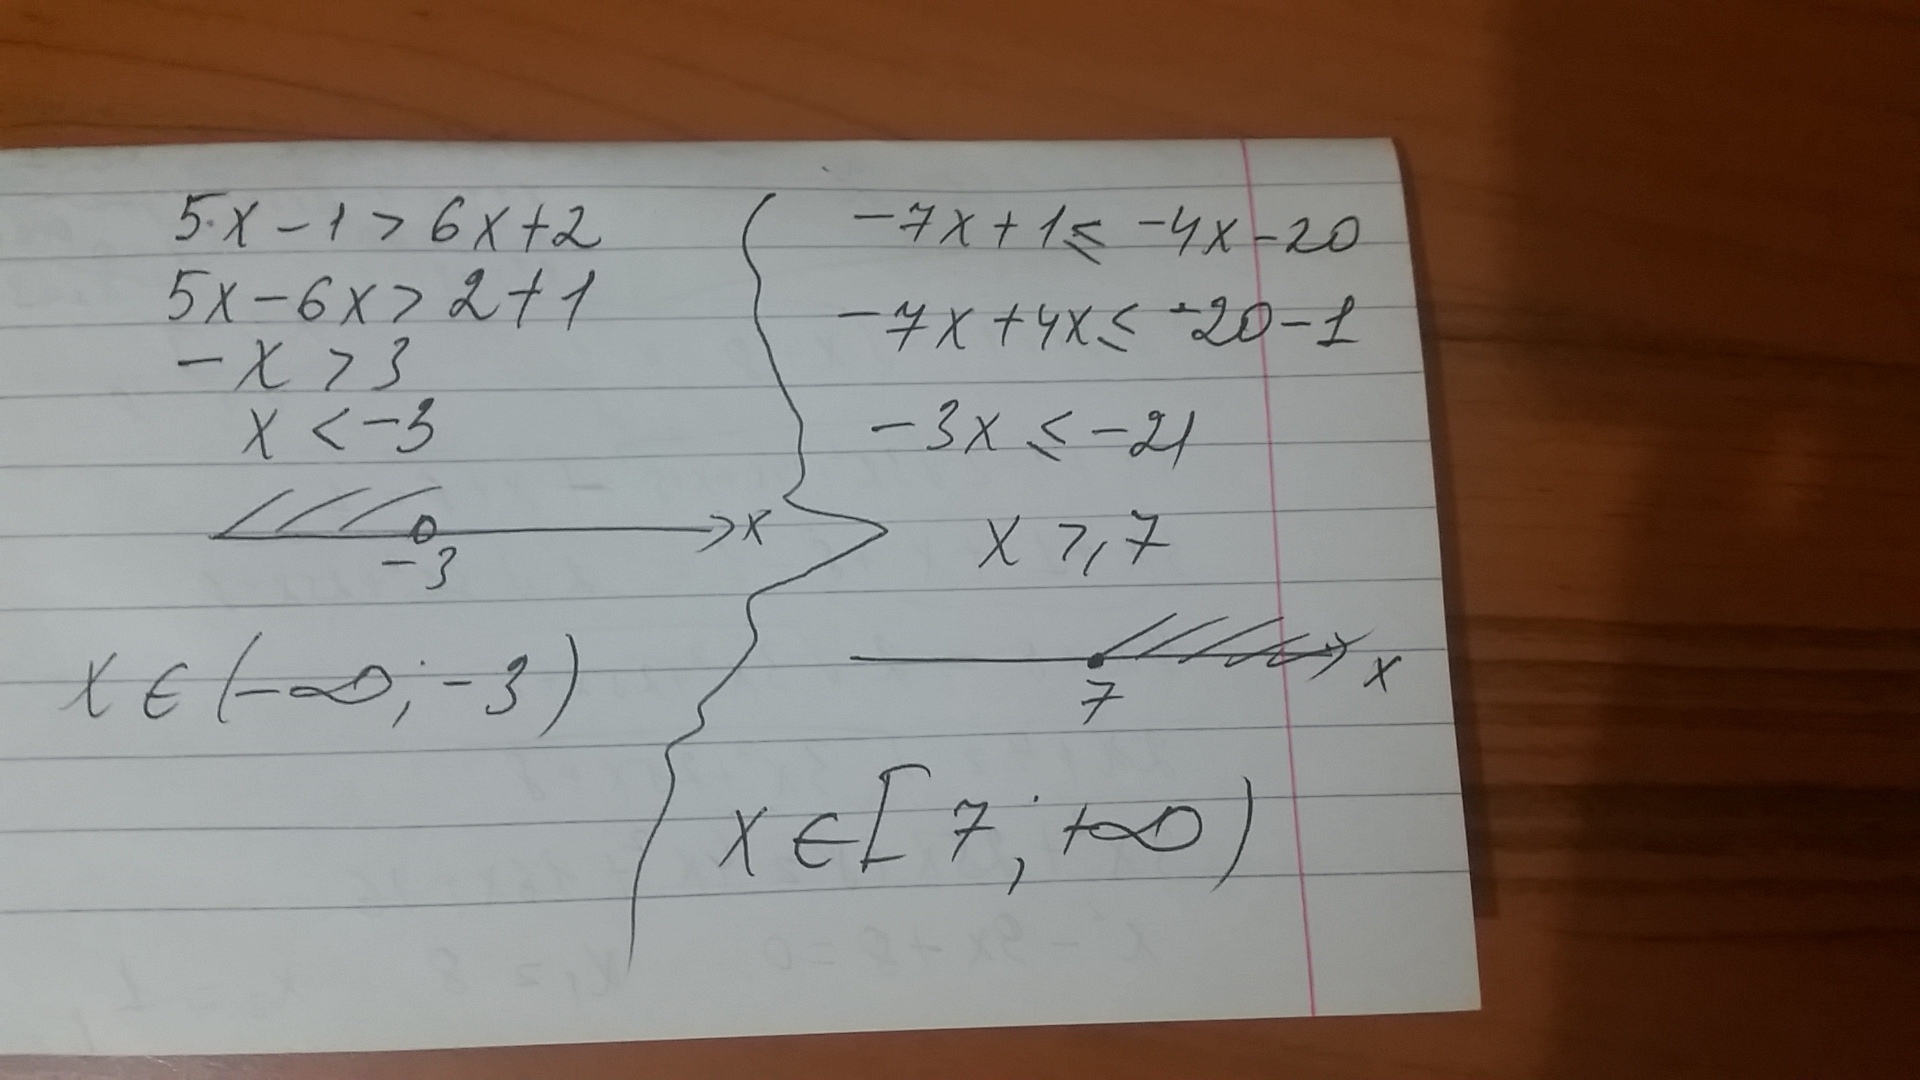 5x-1>6x+2
5x-6x>2+1
-x>3
x<-3
x
-3
x∈(-∞;-3)
-7x+1≤-4x-20
-7x+4x≤-20-1
-3x≤-21
x≥7
x
7
x∈[7;+∞)